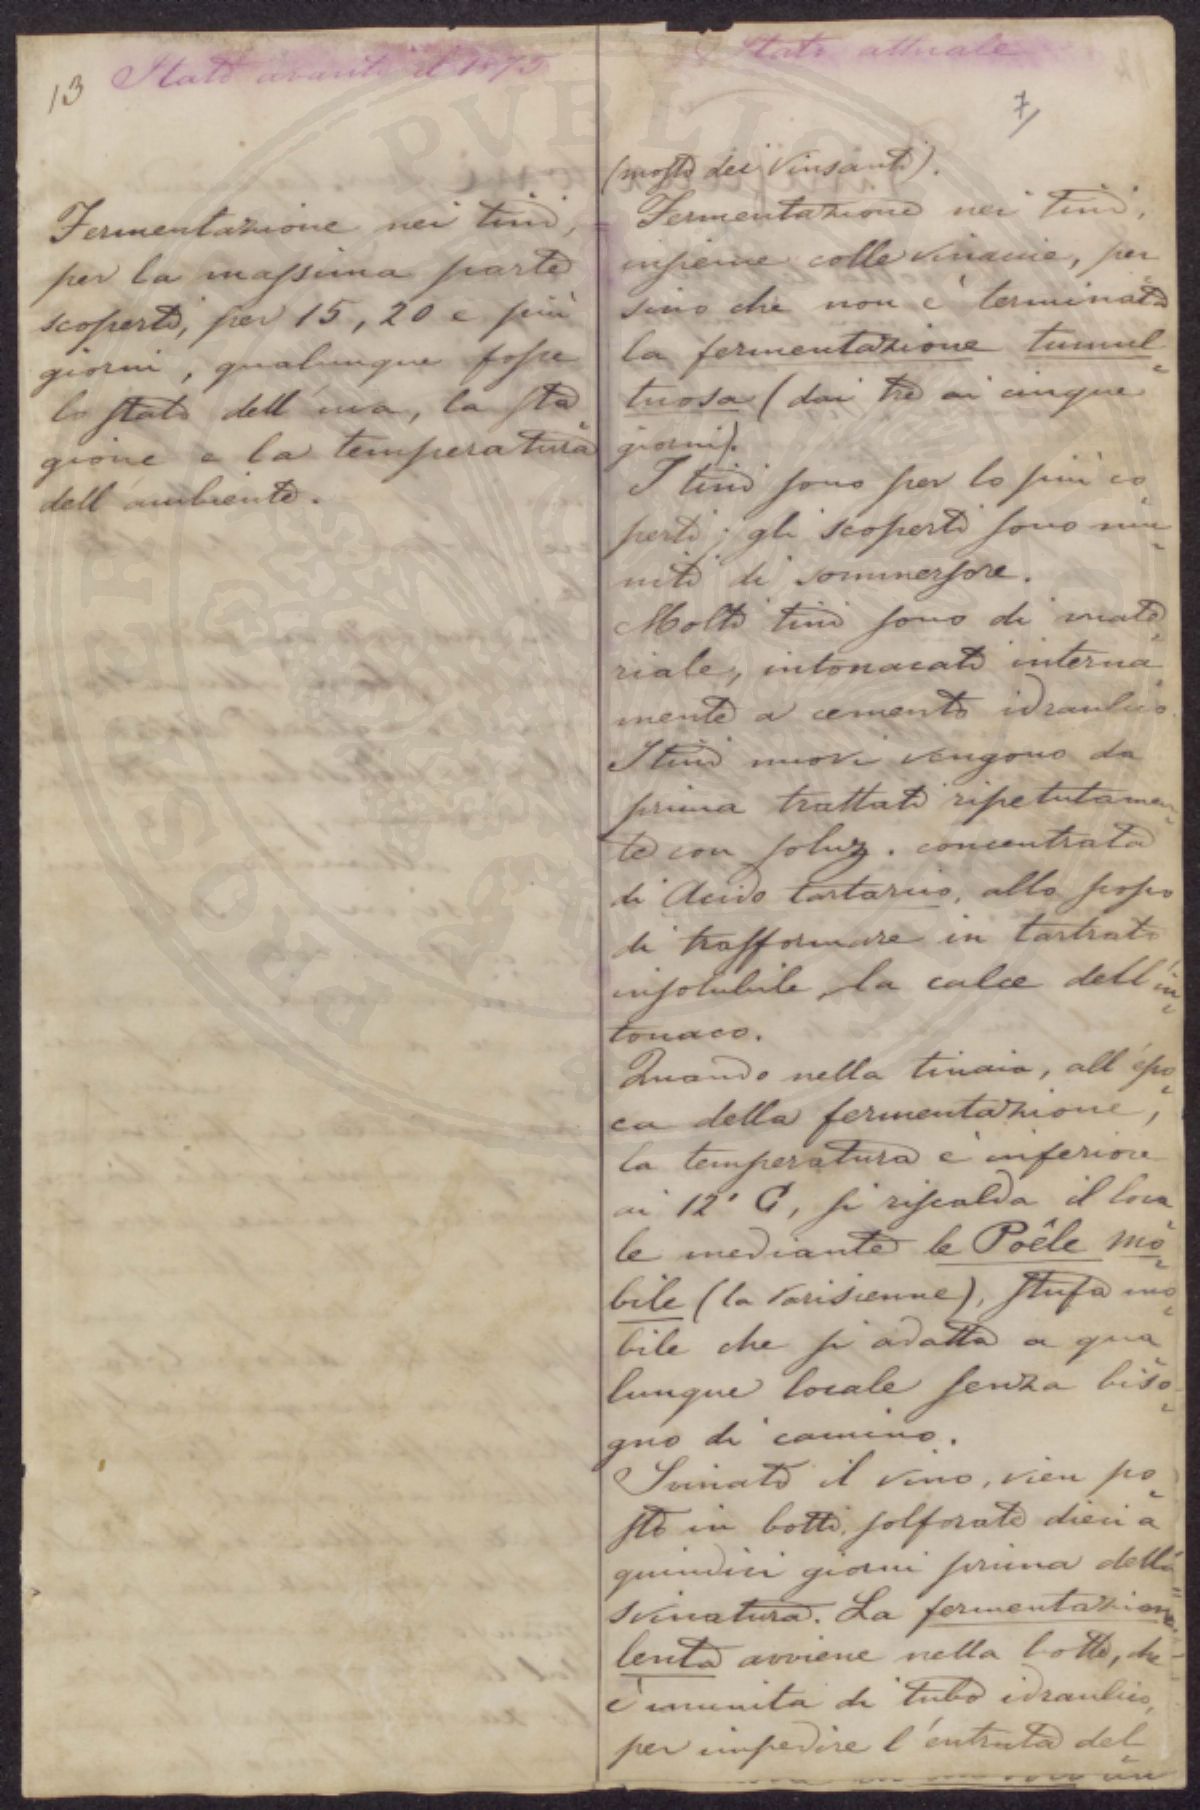 13
Stato avanti il 1875
Fermentazione nei tini,
per la massima parte
scoperti, per 15, 20 e più
giorni, qualunque fosse
lo stato dell'uva, la sta
gione e la temperatura
dell'ambiente.
Stato attuale
7,
(mosto dei Vinsanti).
Fermentazione nei tini,
insieme colle vinacie, per
sino che non è terminata
la fermentazione tumul=
tuosa (dai tre ai cinque
giorni).
I tini sono per lo più co=
perti; gli scoperti sono mu=
niti di sommersore.
Molti tini sono di mate=
riale, intonacati interna=
mente a cemento idraulico.
I tini nuovi vengono da
prima trattati ripetutamen=
te con soluz. concentrata
di Acido tartarico, allo scopo
di trasformare in tartrato
insolubile, la calce dell'in=
tonaco.
Quando nella tinaia, all'epo=
ca della fermentazione,
la temperatura è inferiore
ai 12° C, si riscalda il loca
le mediante le Poêle mo=
bile (la Parisienne), stufa mo=
bile che si adatta a qua
lunque locale senza biso=
gno di camino.
Svinato il vino, vien po=
sto in botti solforate dieci a
quindici giorni prima della
svinatura. La fermentazione
lenta avviene nella botte, che
è munita di tubo idraulico,
per impedire l'entrata del